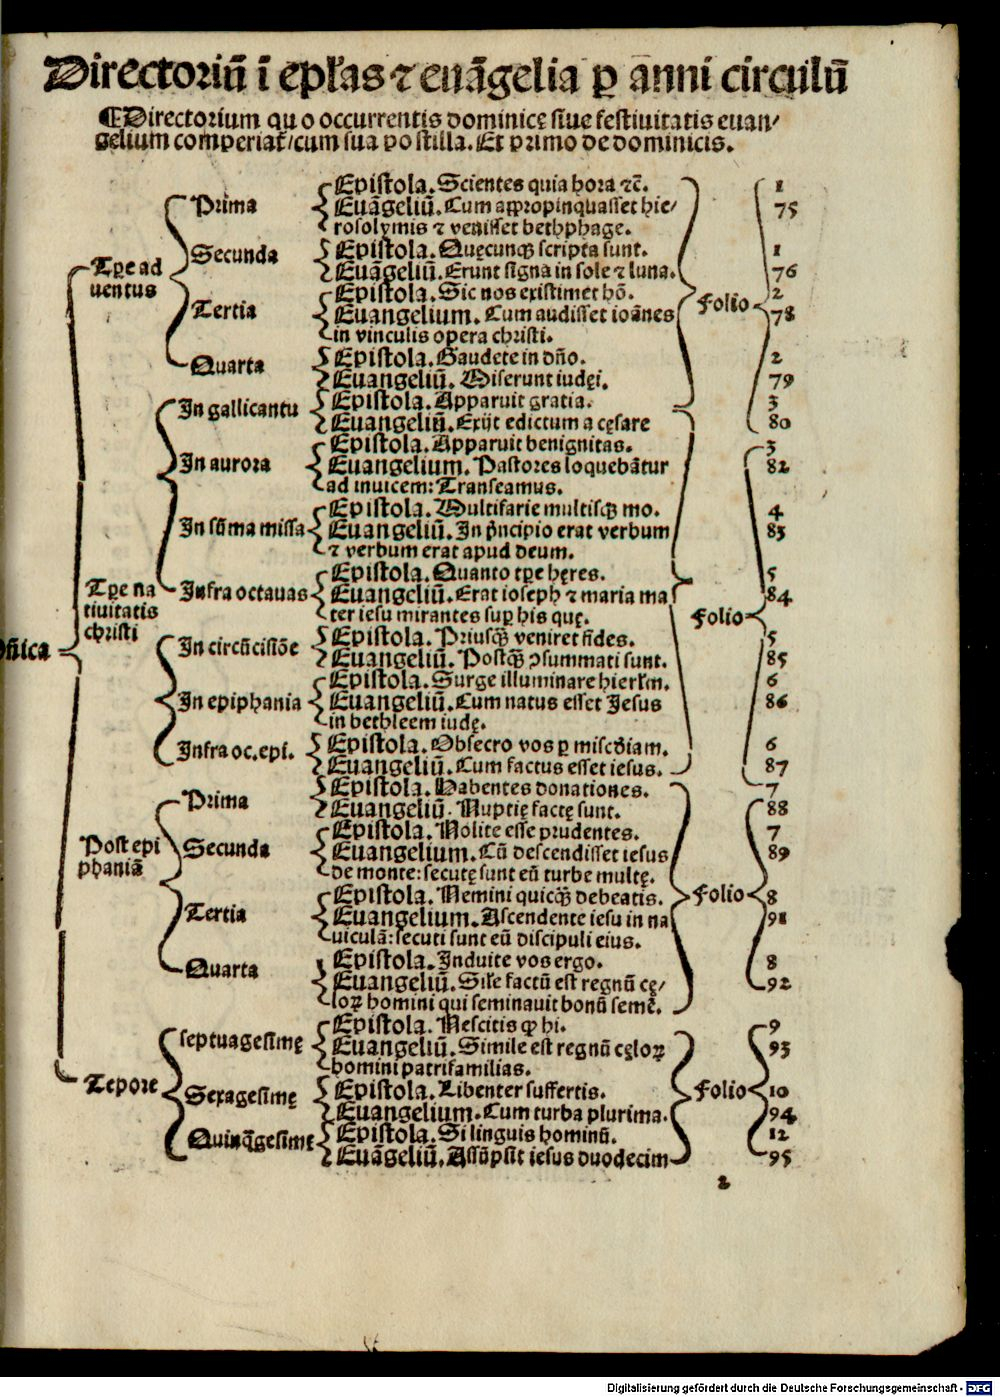 Directoriū ī epl'as ⁊ euāgelia ꝑ anni circulū
¶Directorium quo occurrentis dominicę siue festiuitatis euan/
gelium comperiat̄/cum sua postilla. Et primo de dominicis.
Dn̄ica
Tꝑe ad
uentus
Prima
Epistola. Scientes quia hora ⁊c̄.
1
Euāgeliū. Cum appropinquasset hie/
75
rosolymis ⁊ venisset bethphage.
Secunda
Epistola. Quęcunqꝫ scripta sunt.
1
Euāgeliū. Erunt signa in sole ⁊ luna.
76
Tertia
Epistola. Sic nos existimet hō.
2
Euangelium. Cum audisset ioānes
78
in vinculis opera christi.
Folio
Quarta
Epistola. Gaudete in dn̄o.
2
Euangeliū. Miserunt iudęi.
79
Tꝑe na
tiuitatis
christi
In gallicantu
Epistola. Apparuit gratia.
3
Euangeliū. Exijt edictum a cęsare
80
In aurora
Epistola. Apparuit benignitas.
3
Euangelium. Pastores loquebātur
82
ad inuicem: Transeamus.
In sūma missa
Epistola. Multifarie multisqꝫ mo.
4
Euangeliū. In pͥncipio erat verbum
83
⁊ verbum erat apud deum.
Infra octauas
Epistola. Quanto tꝑe hęres.
5
Euangeliū. Erat ioseph ⁊ maria ma
84
ter iesu mirantes suꝑ his quę.
Folio
In circūcisiōe
Epistola. Priusqꝫ̄ veniret fides.
5
Euangeliū. Postqꝫ̄ ꝯsummati sunt.
85
In epiphania
Epistola. Surge illuminare hierl'm.
6
Euangeliū. Cum natus esset Jesus
86
in bethleem iudę.
Infra oc. epi.
Epistola. Obsecro vos ꝑ misc'diam.
6
Euangeliū. Cum factus esset iesus.
87
Post epi
phaniā
Prima
Epistola. Habentes donationes.
7
Euangeliū. Nuptię factę sunt.
88
Secunda
Epistola. Nolite esse prudentes.
7
Euangelium. Cū descendisset iesus
89
de monte: secutę sunt eū turbe multę.
Tertia
Epistola. Nemini quicqꝫ̄ debeatis.
8
Euangelium. Ascendente iesu in na
91
uiculā: secuti sunt eū discipuli eius.
Folio
Quarta
Epistola. Induite vos ergo.
8
Euangeliū. Sil'e factū est regnū cę/
92
loꝝ homini qui seminauit bonū semē.
Tēpore
septuagesimę
Epistola. Nescitis ꝙ hi.
9
Euangeliū. Simile est regnū cęloꝝ
93
homini patrifamilias.
Sexagesimę
Epistola. Libenter suffertis.
10
Euangelium. Cum turba plurima.
94
Folio
Quinq̄gesimę
Epistola. Si linguis hominū.
12
Euāgeliū. Assūpsit iesus duodecim
95
2
Digitalisierung gefördert durch die Deutsche Forschungsgemeinschaft - DFG